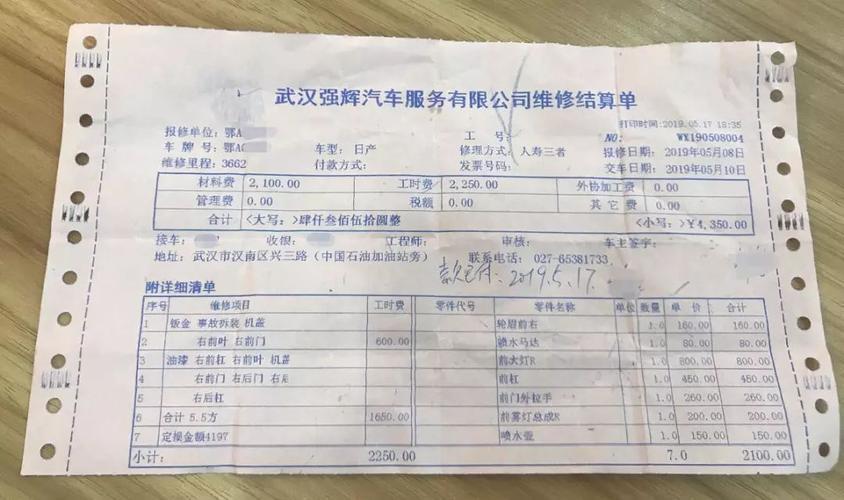 武汉强辉汽车服务有限公司维修结算单
打印时间:2019.05.17 18:35
报修单位: 鄂A 工 号: NO: WX190508004
车 牌 号: 鄂AC 车型: 日产 修理方式: 人寿三者 报修日期: 2019年05月08日
维修里程: 3662 付款方式: 发票号码: 交车日期: 2019年05月10日
材料费 2,100.00 工时费 2,250.00 外协加工费 0.00
管理费 0.00 税额 0.00 其它费 0.00
合计 <大写:>肆仟叁佰伍拾圆整 <小写:>¥4,350.00
接车: 收银: 工程师: 审核: 车主签字:
地址: 武汉市汉南区兴三路（中国石油加油站旁） 联系电话: 027-65381733
款已付: 2019.5.17
附详细清单
序号 维修项目 工时费 零件代号 零件名称 单位 数量 单 价 合计
1 钣金 事故拆装 机盖 轮眉前右 1.0 160.00 160.00
2 右前叶 右前门 600.00 喷水马达 1.0 80.00 80.00
3 油漆 右前杠 右前叶 机盖 前大灯R 1.0 800.00 800.00
4 右前门 右后门 右后 前杠 1.0 450.00 450.00
5 右后杠 前门外拉手 1.0 260.00 260.00
6 合计 5.5方 1650.00 前雾灯总成R 1.0 200.00 200.00
7 定损金额4197 喷水壶 1.0 150.00 150.00
小计: 2250.00 7.0 2100.00